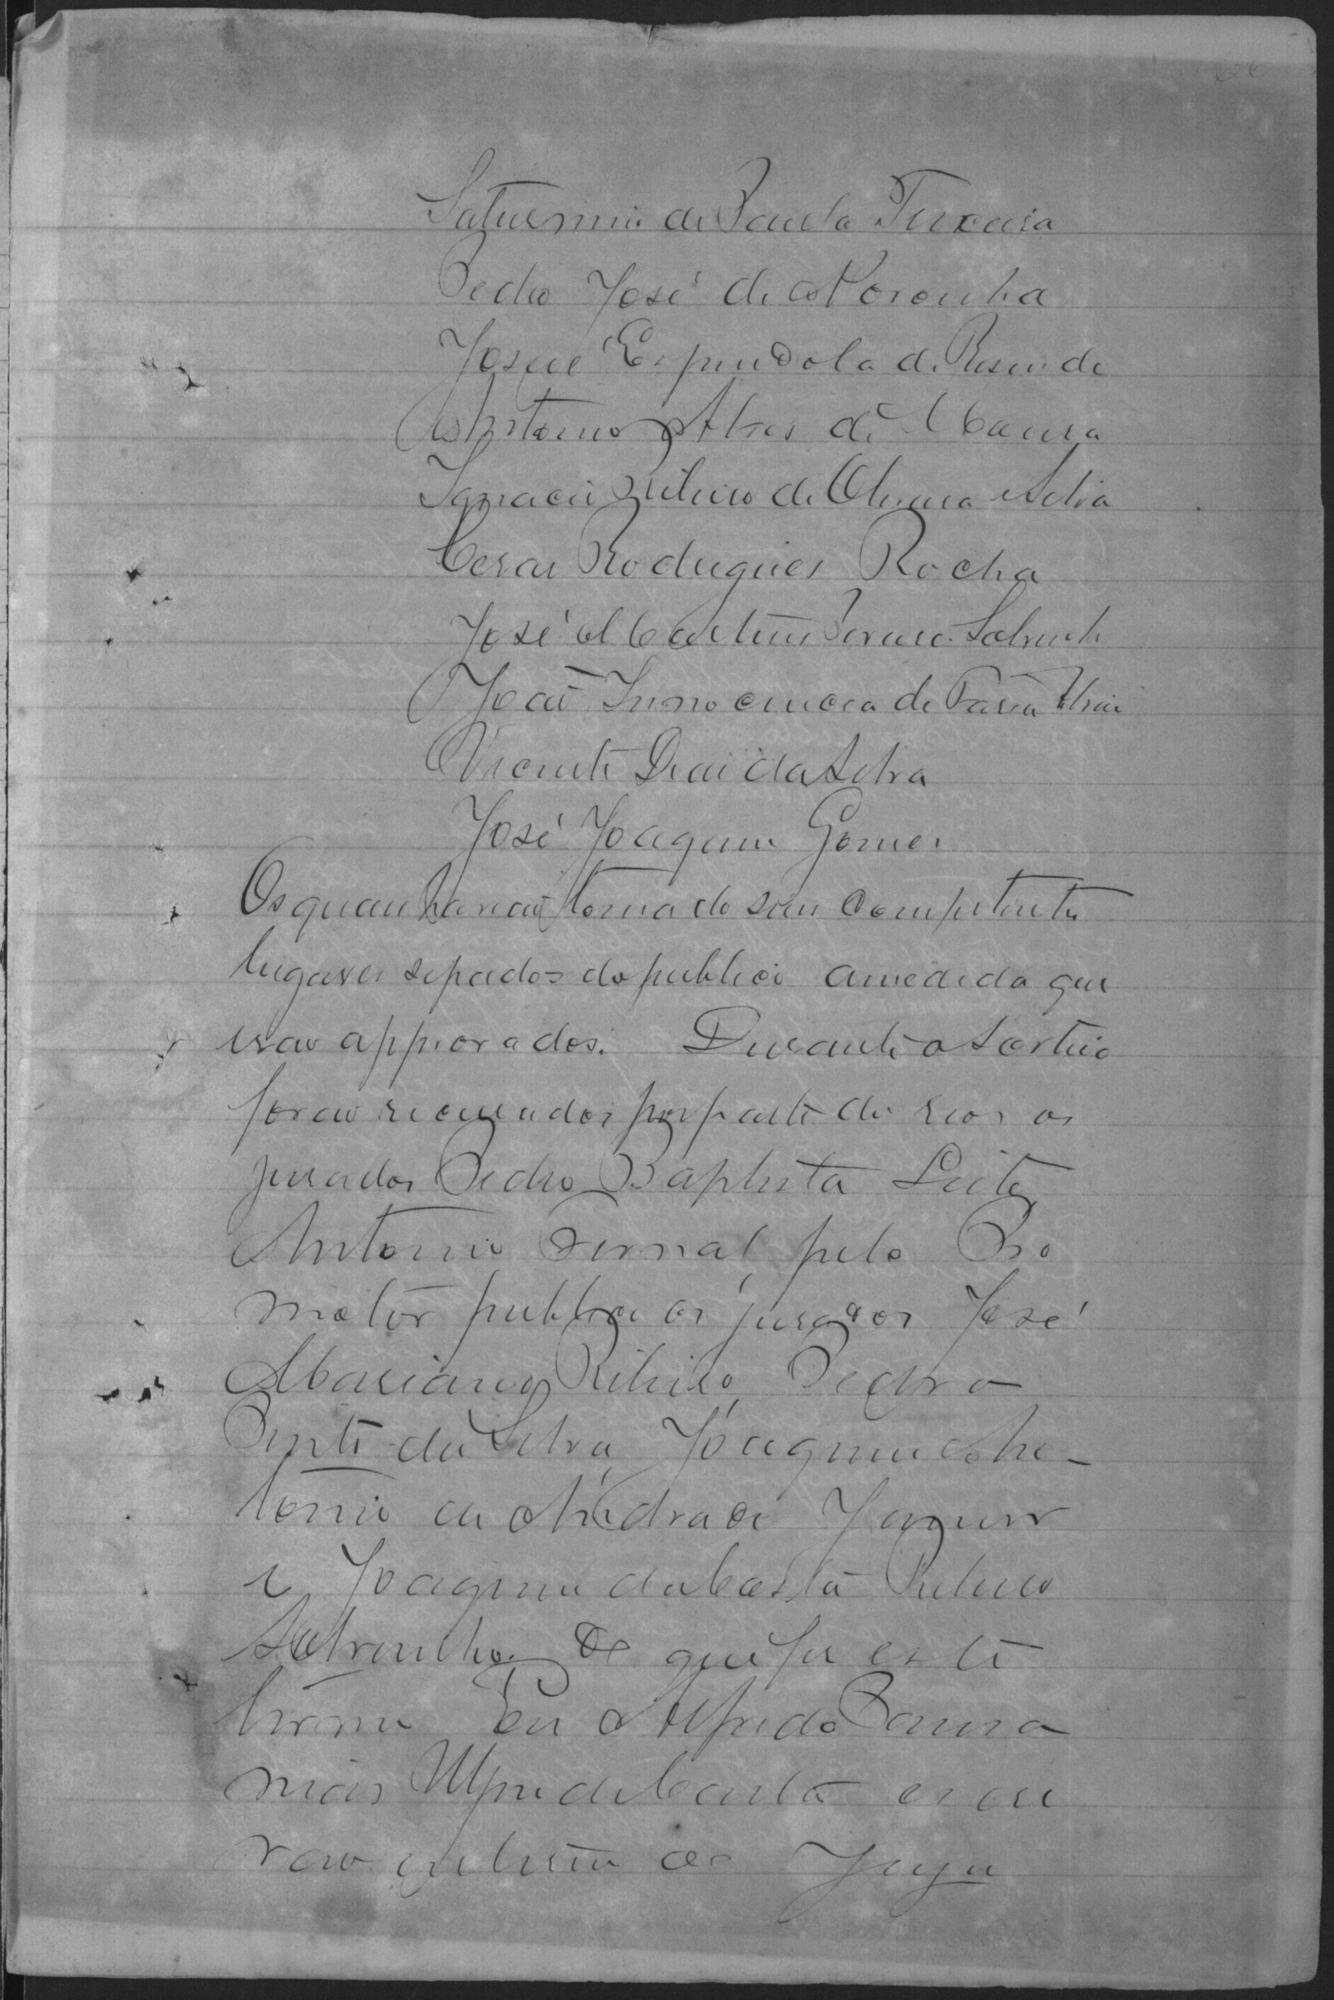 Saturnino de Paula Teixeira
Pedro José de Noronha
Josué Espindola de Resende
Antonio Alves de Moura
Ignacio Ribeiro de Oliveira e Silva
Cesar Rodrigues Rocha
José Martins Pereira Sobrinho
João Innocencia de Faria
Vicente Dias da Silva
José Joaquim Gomes
Os quaes haviao tomado seus competentes
lugares separados do publico a medida que
erao approvados. Durante o sorteio
forao recusados por parte do reos os
jurados Pedro Baptista Leite,
Antonio pelo Pro
motor publico os jurados José
Mariano Ribeiro, Pedro
Bento da Silva, Joaquim An-
tonio de Andrade Junior
e Joaquim da Costa Ribeiro
Sobrinho. De que fiz este
termo. Eu Alfredo
da Costa escri
vao interino do Jury